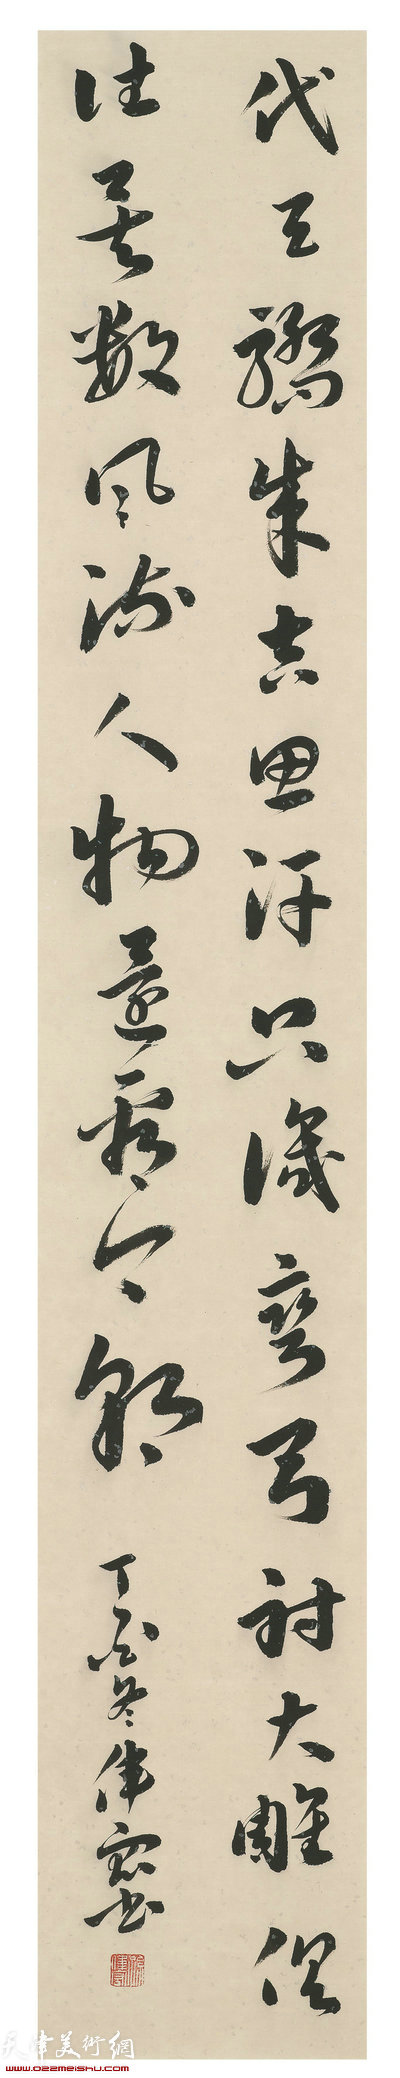 代天骄成吉思汗只识弯弓射大雕俱
往矣数风流人物还看今朝
丁酉冬伟宏书
天津美術網
www.022meishu.com